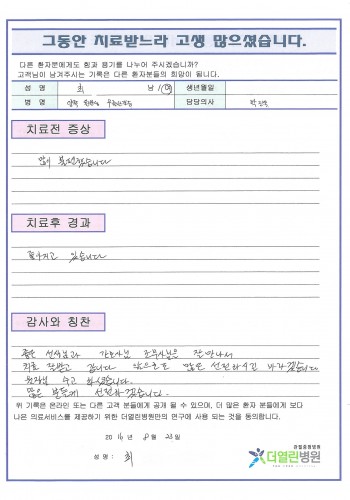 그동안 치료받느라 고생 많으셨습니다.
다른 환자분에게도 힘과 용기를 나누어 주시겠습니까?
고객님이 남겨주시는 기록은 다른 환자분들의 희망이 됩니다.
성 명 최 남 / 여 생년월일
병 명 양쪽 담당의사
치료전 증상
많이 불편했습니다
치료후 경과
좋아지고 있습니다
감사와 칭찬
좋은 선생님과 간호사님 조무사님을 잘 만나서
치료 잘받고 갑니다 앞으로도 많은 선전하시길 바라겠습니다
수고 하셨습니다.
많은 분들께 선전하겠습니다.
위 기록은 온라인 또는 다른 고객 분들에게 공개 될 수 있으며, 더 많은 환자 분들에게 보다
나은 의료서비스를 제공하기 위한 더열린병원만의 연구에 사용 되는 것을 동의합니다.
2016 년 8 월 23 일
성 명 : 최
관절종합병원
더열린병원